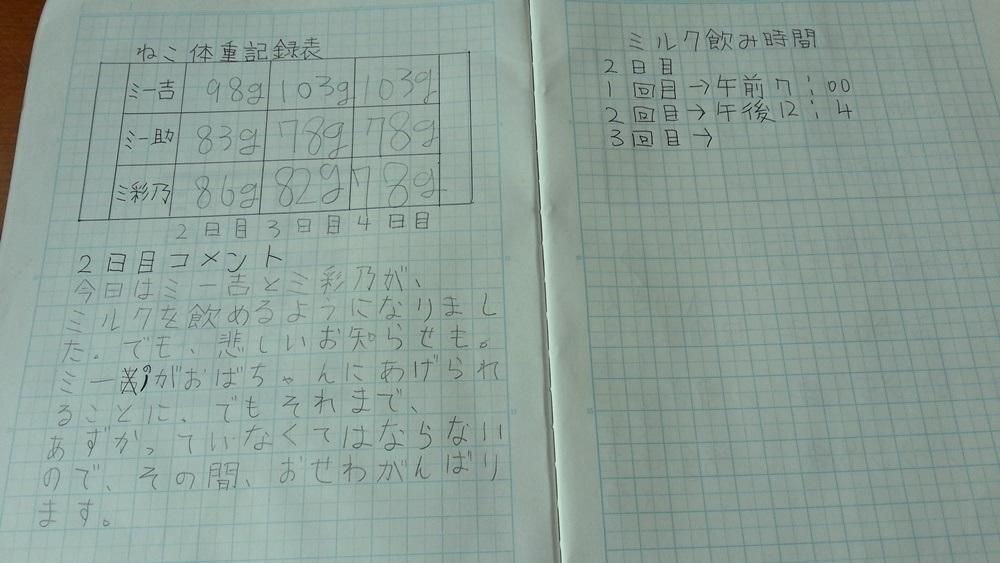 ねこ体重記録表
ミー吉 98g 103g 103g
ミー助 83g 78g 78g
ミ彩乃 86g 82g 78g
2日目 3日目 4日目
2日目コメント
今日はミー吉とミ彩乃が、
ミルクを飲めるようになりまし
た。でも、悲しいお知らせも。
ミー がおばちゃんにあげられ
ることに。でもそれまで、
あずかっていなくてはならない
ので、その間、おせわがんばり
ます。
ミルク飲み時間
2日目
1回目→午前7:00
2回目→午後12:4
3回目→